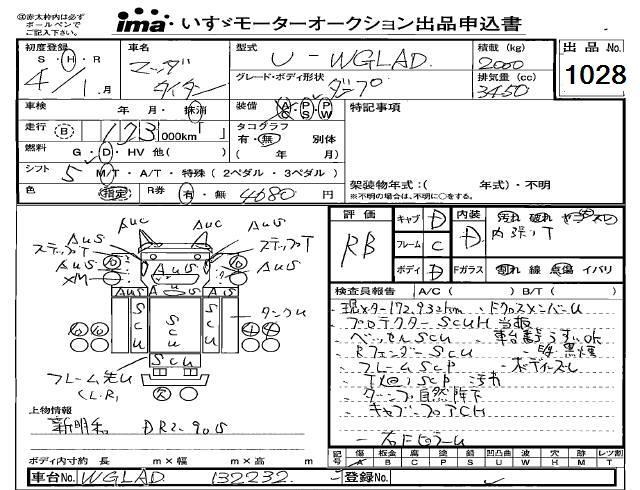 ◎赤太枠内は必ず
ボールペンで
ご記入下さい。
ima いすゞモーターオークション出品申込書
初度登録 車名 型式 積載 (kg) 出品 No.
S・H・R マツダ U-WGLAD 2000
4/1月 タイタン グレード・ボディ形状 ダンプ 排気量 (cc) 3450
1028
車検 年・月・抹消 装備 A/C P/S P/W 特記事項
走行 B 123,000km タコグラフ 有・無 別体
燃料 G・D・HV 他( ) ( 年 月)
シフト 5 M/T・A/T・特殊(2ペダル・3ペダル)
色 指定 R券 有・無 4680 円
架装物年式:( 年式)・不明
※不明の場合は、不明に○をする。
評価 RB キャブ D 内装 D 汚れ 破れ
フレーム C 内張リT
ボディ D Fガラス 割れ 線 点傷 イバリ
検査員報告 A/C( ) / ( )
AUC AUC
AUS AUS
ステップT ステップT
AUS AUS AUS
XM
AUS AUS
SCU SCU SCU タンクU
SCU
フレーム先U
(L.R)
現メーター172,932km
プロテクターSCUH
ベッセルSCU
RフェンダーSCU 黒煙
フレームSCP
汚れ
ダンプ自然降下
右FピラーU
上物情報
新明和 DR2-90S
ボディ内寸約 長 m×幅 m×高 m
記号 傷 板金 腐 塗 錆 凹 凸曲 波 穴 跡 レツ割
A B C P S U W H M T
車台No. WGLAD 132232 登録No.